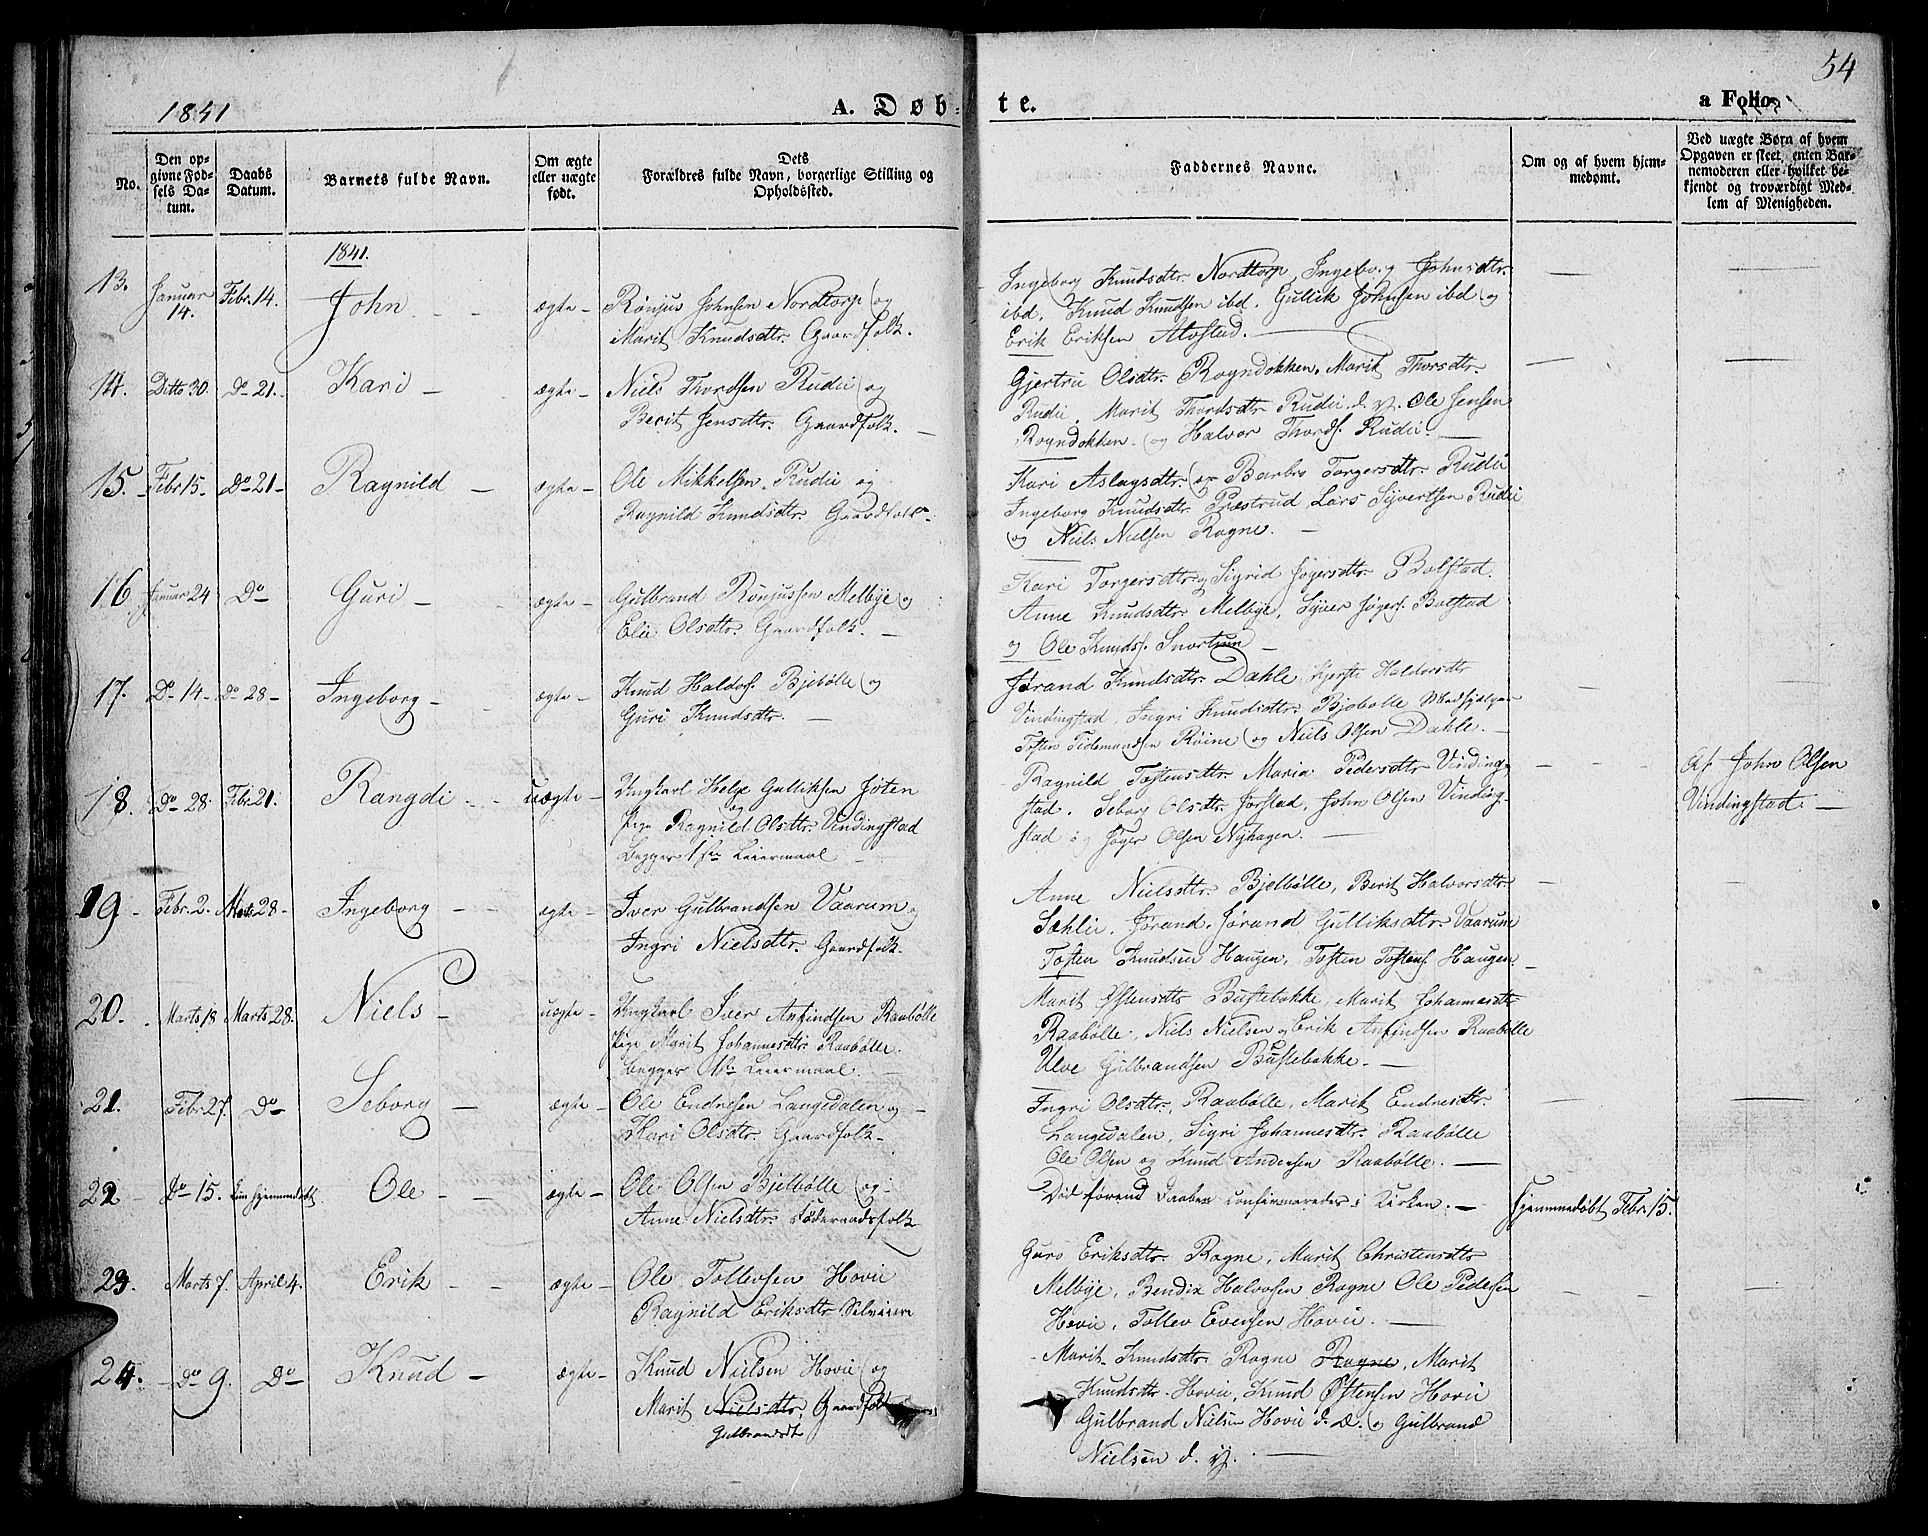 54
1841
A. Døbte.
a Folio
No.
Den opgivne Fødsels Datum.
Daabs Datum.
Barnets fulde Navn.
Om ægte eller uægte født.
Dets Forældres fulde Navn, borgerlige Stilling og Opholdssted.
Faddernes Navne.
Om og af hvem hjemmedømt.
Ved uægte Børn af hvem Opgaven er skeet, enten Barnemoderen eller hvilket bekjendt og troværdigt Medlem af Menigheden.
1841.
13. Januar 14. Febr. 14. John - ægte - Rønjus Johnsen Nordtorp og
Marit Knudsdtr. Gaardfolk.
Ingeborg Knudsdtr. Nordtorp, Ingeborg Johnsdtr.
ibd. Knud Knudsen ibd. Gullik Johnsen ibd og
Erik Eriksen Alfstad. -
14. Ditto 30. Do 21. - Kari - ægte - Niels Thordsen Rudii og
Berit Jensdtr. Gaardfolk. -
Gjertru Olsdtr. Rogndokken, Marit Thorsdtr.
Rudii, Marit Thordsdtr. Rudii d. y. Ole Jensen
Rogndokken og Halvor Thords. Rudii. -
15. Febr 15. Do 21 - Ragnild - ægte - Ole Mikkelsen Rudii og
Ragnild Knudsdtr. Gaardfolk.
Kari Aslagsdtr. og Barbro Torgersdtr. Rudii
Ingeborg Knudsdtr. Præstrud, Lars Sijvertsen Rudii
og Niels Nielsen Rogne. -
16. Januar 24 Do Guri - ægte - Gulbrand Rønjussen Melbye og
Elie Olsdtr. Gaardfolk. -
Kari Torgersdtr. og Sigrid Jøgersdtr. Bolstad.
Anne Knudsdtr. Melbye, Syver Jøgers. Bolstad
og Ole Knuds. Snortum -
17. Do 14 - Do 28 - Ingeborg - ægte - Knud Haldors. Bjebølle og
Guri Knudsdtr. -
Jørand Knudsdtr. Dahle, Kjersti Haldorsdtr
Vindingstad, Ingri Knudsdtr. Bjebølle
Tosten Tidemandsen Røine og Niels Olsen Dahle. -
18. Do 28. Febr. 21. Rangdi - uægte - Ungkarl Helge Gulliksen Joten
og
Pige Ragnild Olsdtr. Vindingstad
Begges 1ste Leiermaal -
Ragnild Tostensdtr. Maria Pedersdtr Vinding-
stad. Seborg Olsdtr. Jørstad, John Olsen Vinding-
stad og Jøger Olsen Nyhagen. -
Af John Olsen
Vindingstad. -
19. Febr. 2. Marts 28. Ingeborg - ægte - Iver Gulbrandsen Vaarum og
Ingri Nielsdtr. Gaardfolk.
Anne Nielsdtr. Bjelbølle, Berit Halvorsdtr.
Sæhlii. Jørand, Jørand Gulliksdtr. Vaarum
Tosten Knudsen Haugen, Tosten Tostens. Haugen. -
20. Marts 18 Marts 28. Niels - uægte - Ungkarl Iver Anfindsen Raabølle
Pige Marit Johannesdtr. Raabølle.
Begges 1ste Leiermaal. -
Marit Østensdtr Bustebakke, Marit Johannesdtr.
Raabølle, Niels Nielsen og Erik Anfindsen Raabølle
Ulve Gulbrandsen Bustebakke. -
21. Febr. 27. Do Seborg - ægte - Ole Endresen Langedalen og -
Kari Olsdtr. Gaardfolk -
Ingri Olsdtr. Raabølle, Marit Endresdtr.
Langedalen, Sigri Johannesdtr. Raabølle
Ole Olsen og Knud Andersen Raabølle. -
22 Do 15. Ole - ægte - Ole Olsen Bjelbølle og
Anne Nielsdtr. Føderaadsfolk
Død førend Daaben confirmeredes i Kirken. -
Hjemmedøbt Febr. 15.
23. Marts 7. April 4. Erik - ægte - Ole Tollevsen Hovii
Ragnild Eriksdtr.
Guro Eriksdtr. Rogne, Marit Christensdtr.
Melbye, Bendix Halvorsen Rogne Ole Pedersen
Hovii, Tollev Evensen Hovii. -
24. Do 9. Do Knud - ægte - Knud Nielsen Hovii og
Marit Nielsdtr, Gaardfolk
Gulbrandsdtr
Marit Knudsdtr. Rogne Rogne, Marit
Knudsdtr. Hovii, Knud Østensen Hovii
Gulbrand Nielsen Hovii d. Æ. og Gulbrand
Nielsen d. y. -